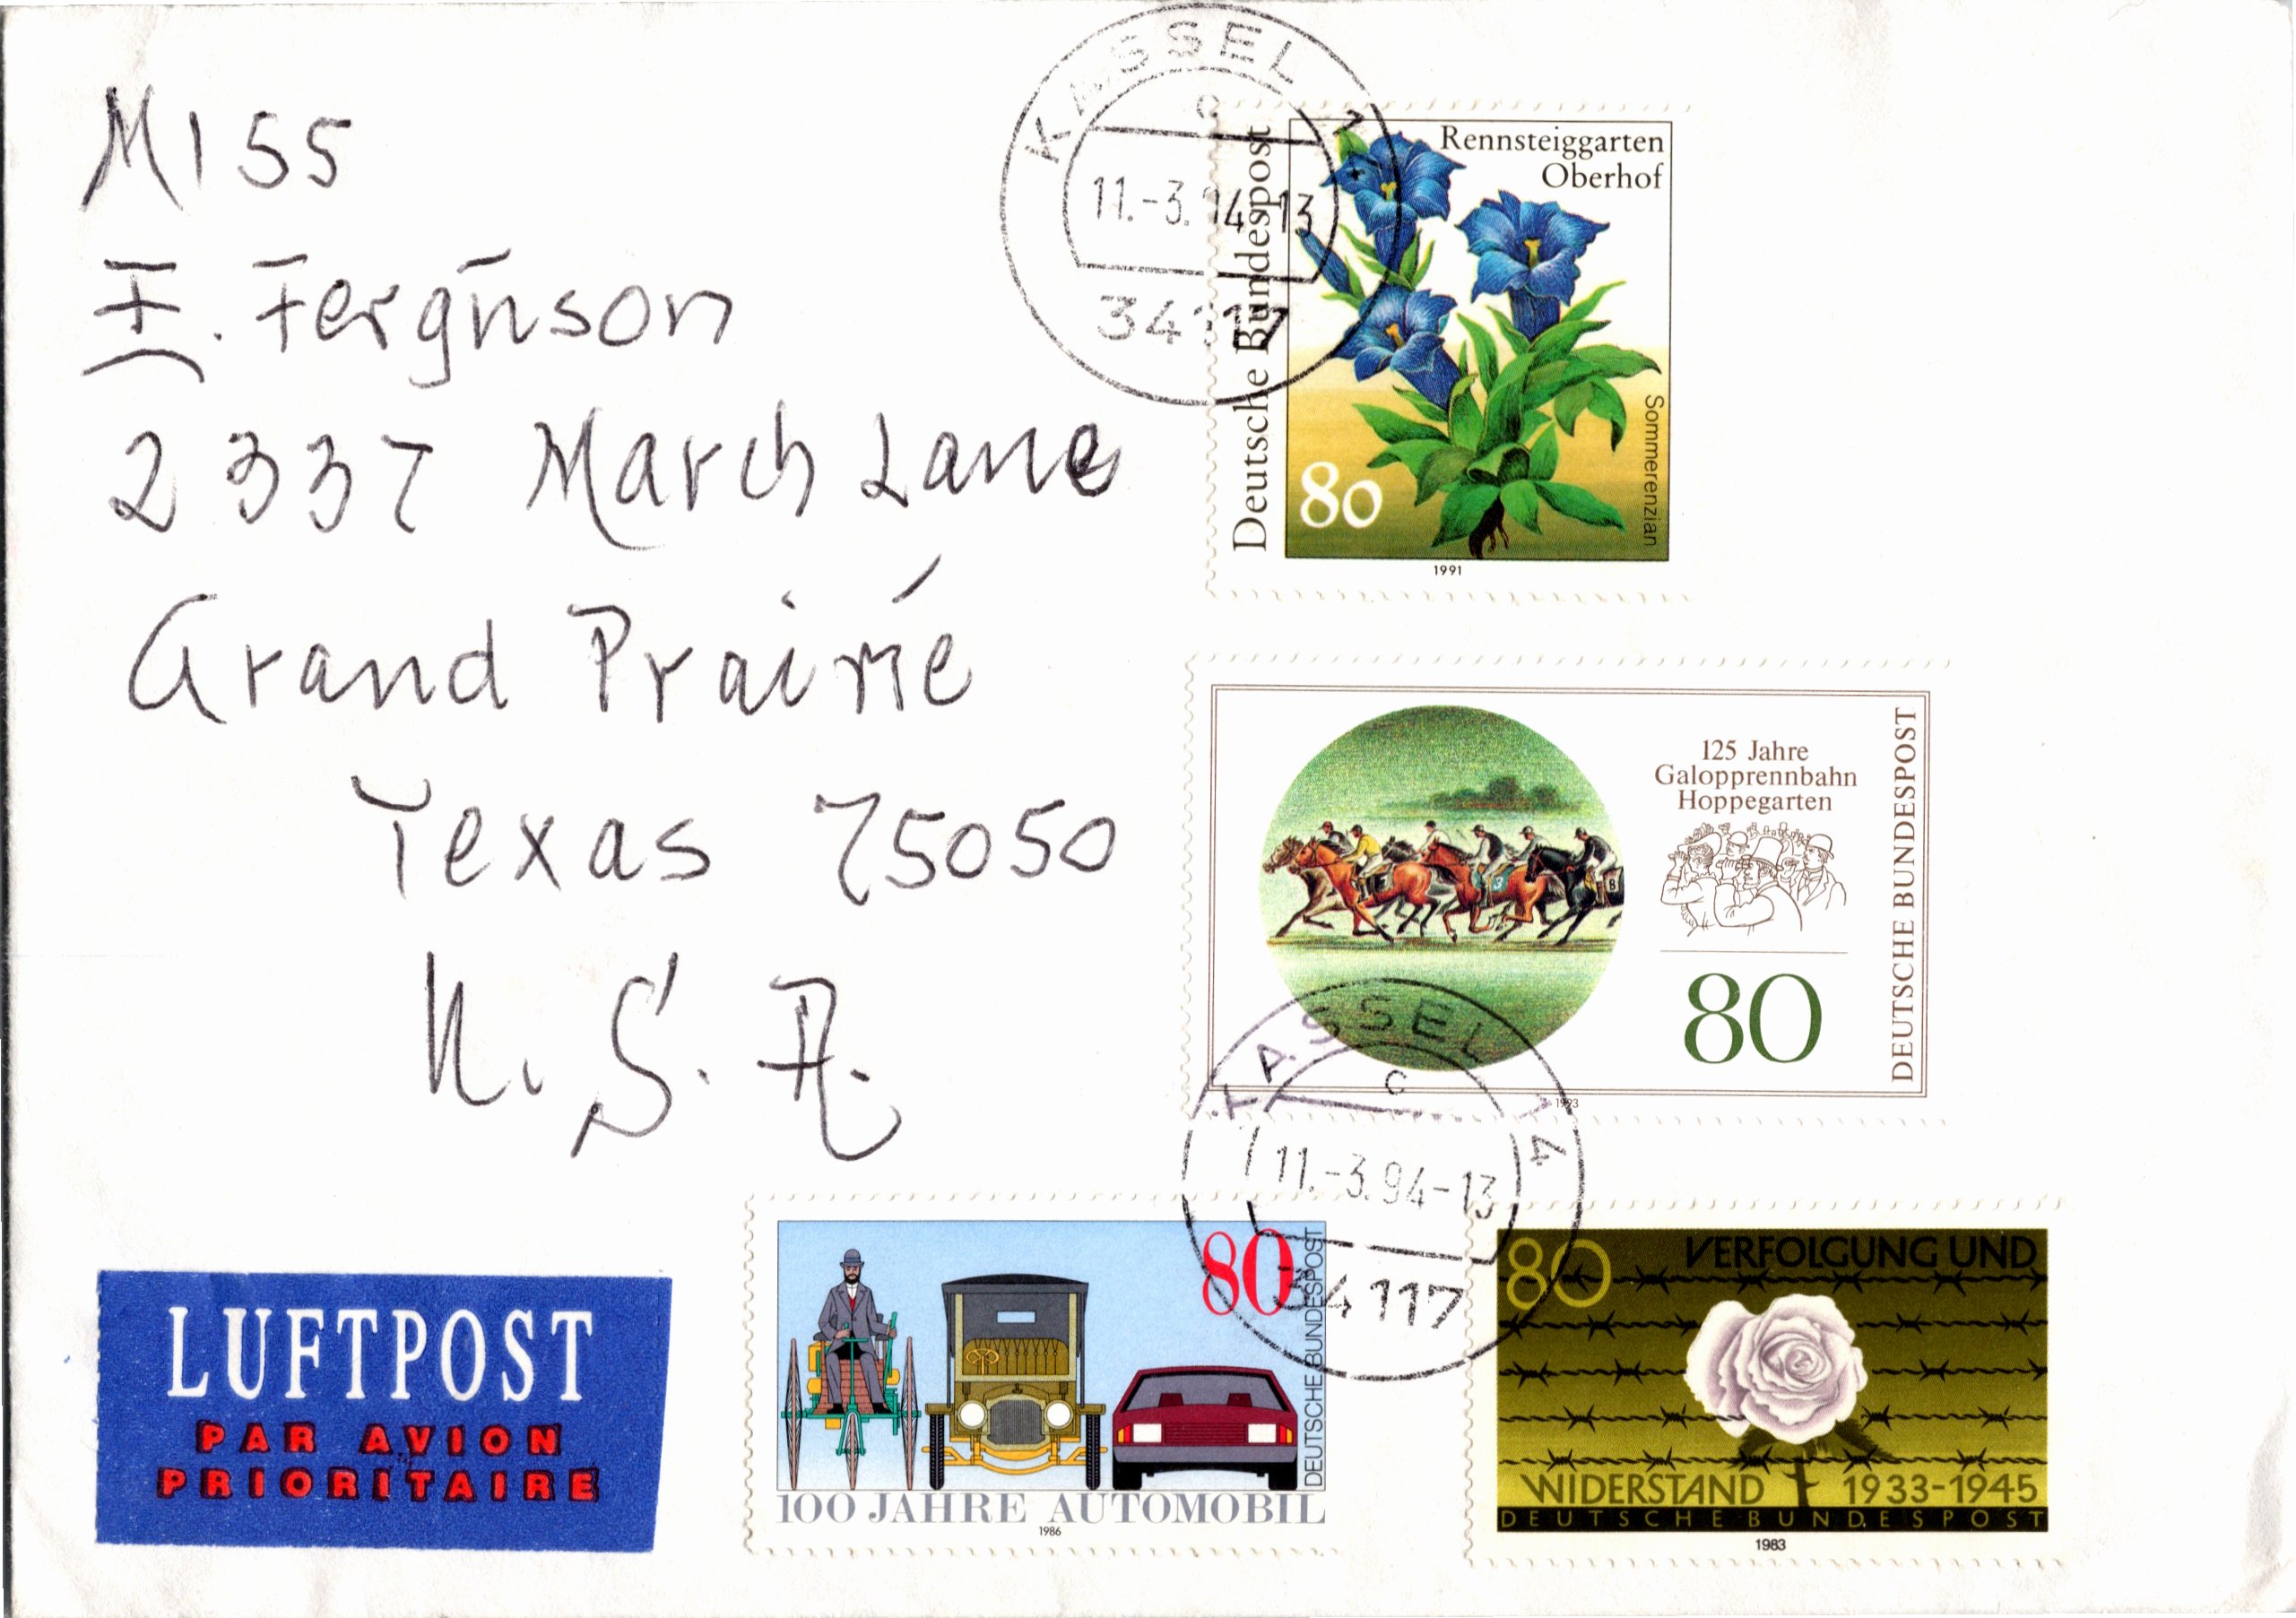 MISS
F. Ferguson
2337 March Lane
Grand Prairie
Texas 75050
U. S. A.
LUFTPOST
PAR AVION
PRIORITAIRE
KASSEL 14
c
11.-3.94-13
34117
Deutsche Bundespost
Rennsteiggarten
Oberhof
Sommerenzian
80
1991
125 Jahre
Galopprennbahn
Hoppegarten
80
DEUTSCHE BUNDESPOST
3
8
1993
KASSEL 14
c
11.-3.94-13
34117
80
DEUTSCHE BUNDESPOST
100 JAHRE AUTOMOBIL
1986
80 VERFOLGUNG UND
WIDERSTAND 1933-1945
DEUTSCHE BUNDESPOST
1983